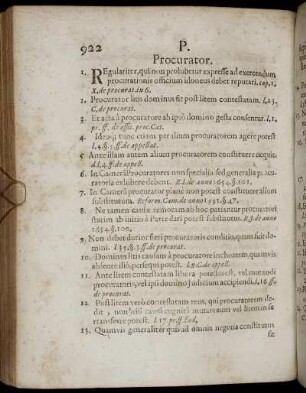 922 P.
Procurator.
1. REgulariter, qui non prohibetur expresse ad exercendum
procurationis officium idoneus debet reputari. cap. 1.
X. de procurat. in 6.
2. Procurator litis dominus fit post litem contestatam. l. 23.
C. de procurat.
3. Et acta à procuratore ab ipso domino gesta censentur. l. 1.
pr. ff. de offic. proc. Cæs.
4. Ideoque tunc etiam per alium procuratorem agere potest
l. 4. §. ff. de appellat.
5. Ante illam autem alium procuratorem constituere nequit.
d. l. 4. ff. de appell.
6. In Camerâ Procuratores non specialia sed generalia procuratoria
exhibere debent. R. I. de anno 1654. §. 101.
7. In Camerâ procurator planè non potest constituere alium
substitutum. Reform. Cam. de anno 1531. §. 47.
8. Ne tamen causæ remoram ab hoc patiantur procuratori
statim ab initio à Parte dari potest substitutus. R. J. de anno
1654. §. 100.
9. Non debet durior fieri procuratoris conditio, quam sui domini.
l. 39. §. ff. de procurat.
10. Dominus litis causam à procuratore inchoatam, quamvis
absente illo, persequi potest. C. de appell.
11. Ante litem contestatam libera potestas est, vel mutandi
procuratoris, vel ipsi domino Judicium accipiendi. l. 16. ff.
de procurat.
12. Post litem verò contestatam reus, qui procuratorem dedit,
non nisi causâ cognitâ mutare eum vel litem in se
transferre potest. l. 17. pr. ff. Eod.
13. Quamvis generaliter quis ad omnia negotia constitutus
sit